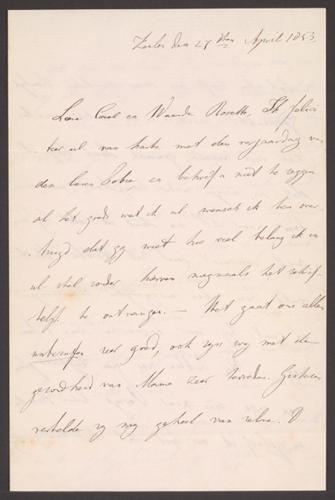 den 27sten April 1853.
Lieve Carel en Waarde Rosette, Ik felici
teer ul van harte met den verjaardag van
den lieven en behoef u niet te zeggen
al het goede wat ik ul wensch ik ben over
tuigd dat gy weet hoe veel belang ik in
ul stel zonder hiervan nogmaals het schrif
telyk te ontvangen. — Het gaat ons allen
zeer goed, ook zyn wy met de
gezondheid van Mama zeer tevreden. Gisteren
vertelde zy nog geheel van